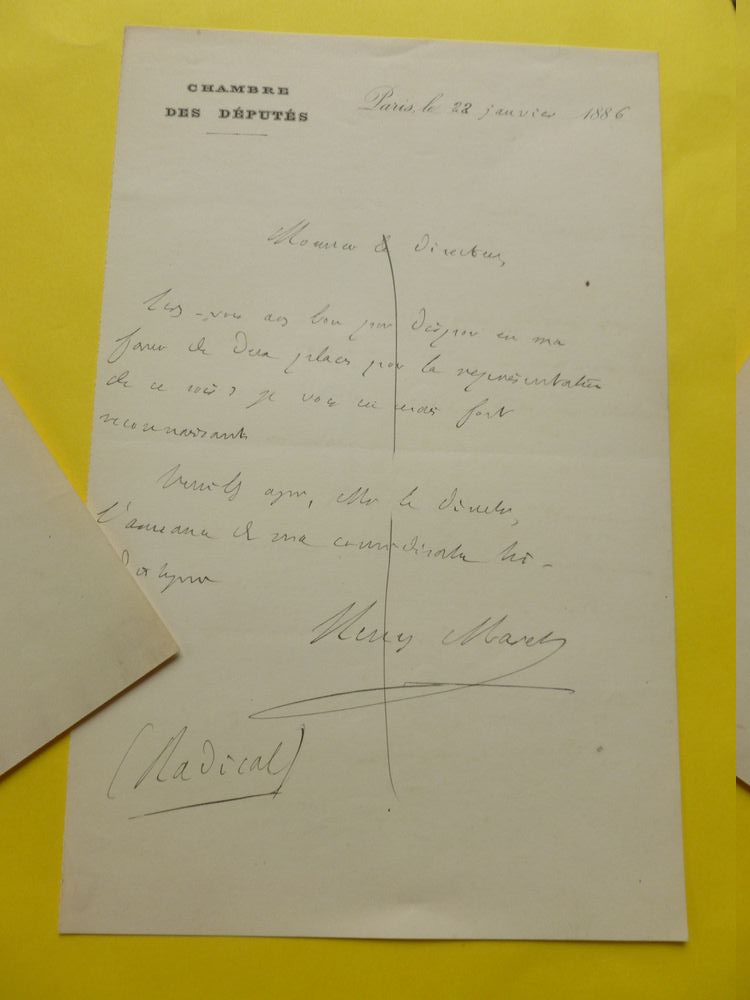 CHAMBRE
DES DÉPUTÉS
Paris, le 22 janvier 1886
Monsieur le Directeur,
Etes-vous assez bon pour disposer en ma
faveur de deux places pour la représentation
de ce soir? Je vous en serais fort
reconnaissant.
Veuillez agréer, Mr le Directeur,
l'assurance de ma considération
distinguée
Henry Maret
(Radical)